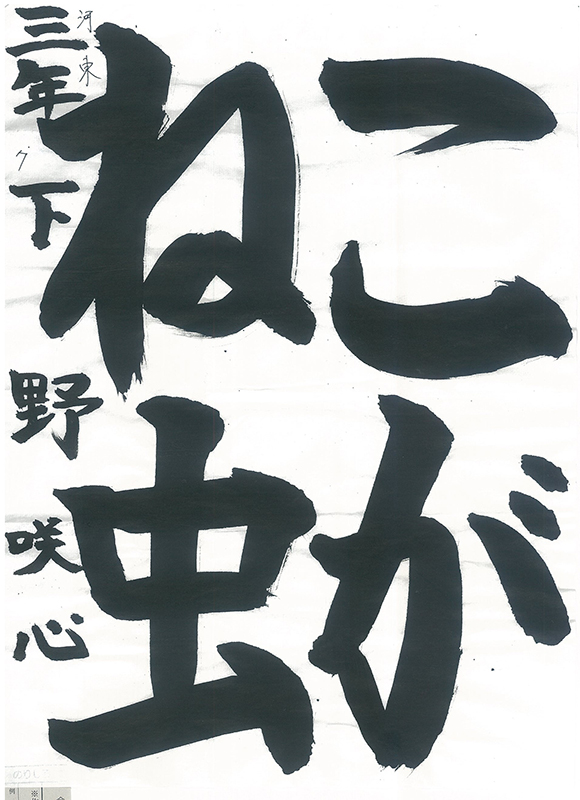 こが
ね虫
河東
三年 下野咲心